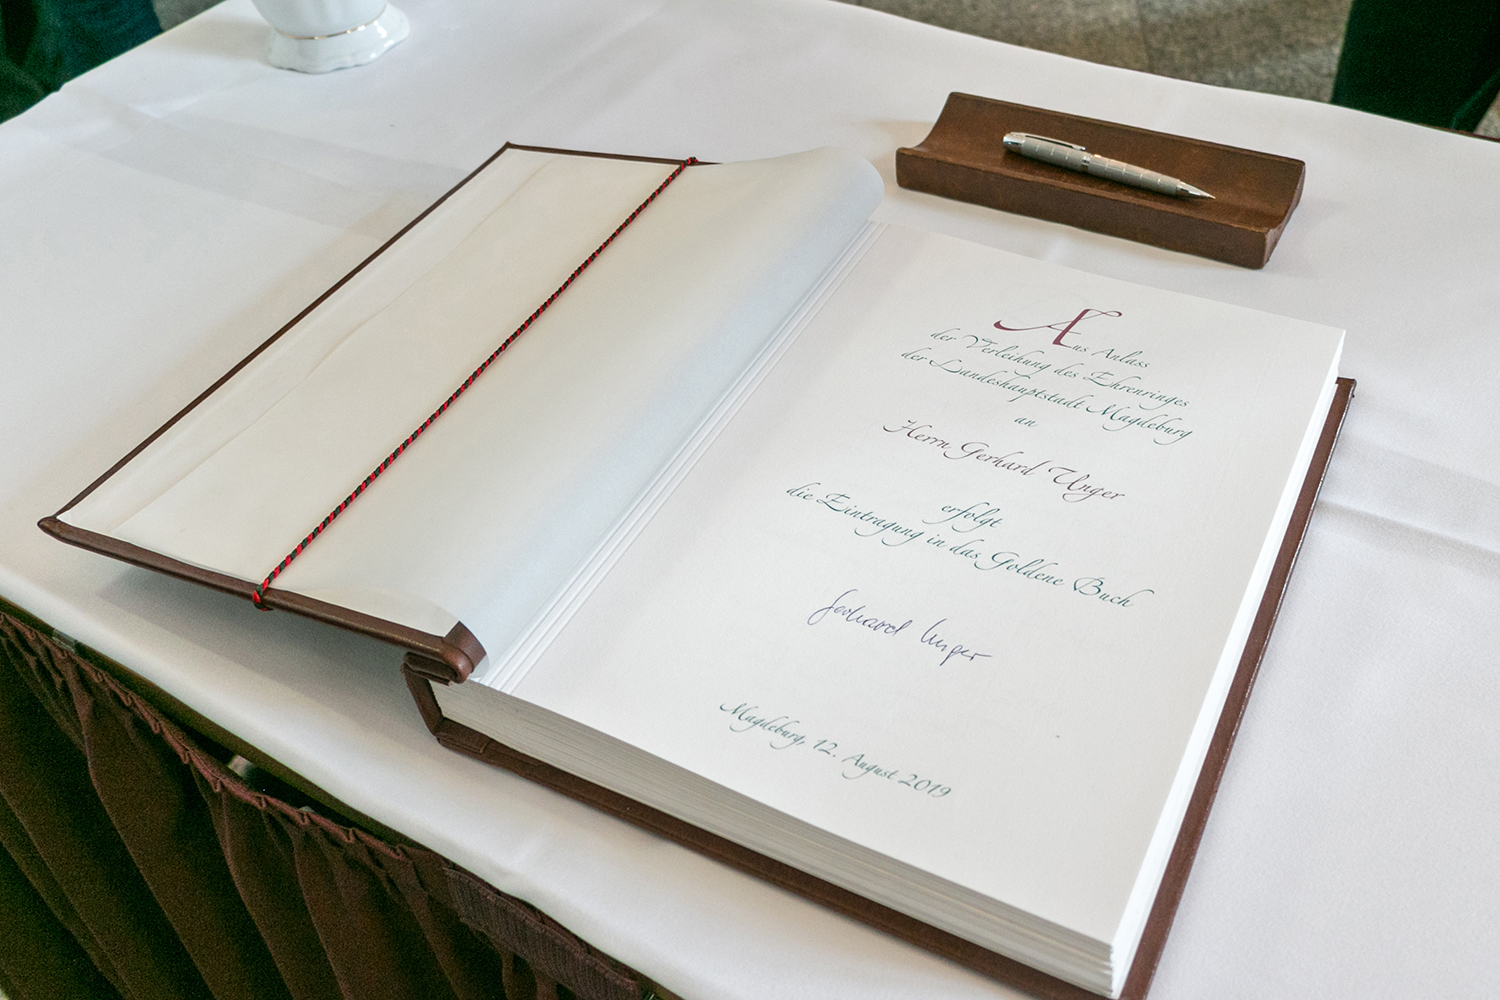 Aus Anlass
der Verleihung des Ehrenringes
der Landeshauptstadt Magdeburg
an
Herrn Gerhard Unger
erfolgt
die Eintragung in das Goldene Buch
Gerhard Unger
Magdeburg, 12. August 2019